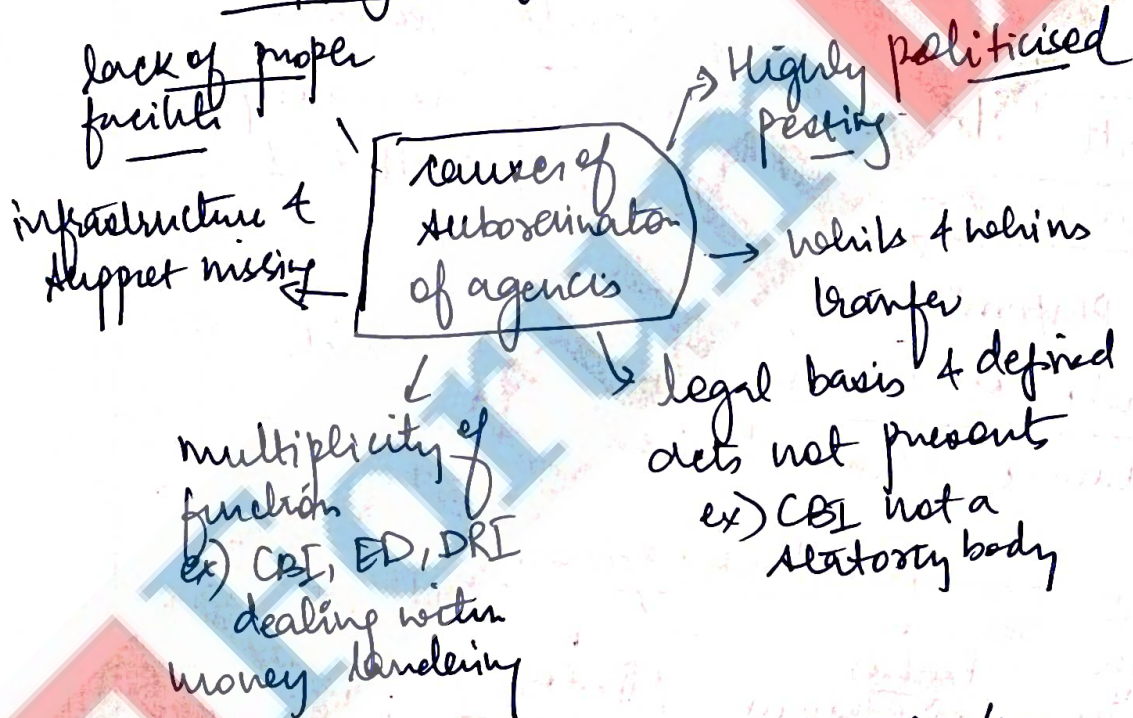 lack of proper
facilite
infrastructure &
support missing
causes of
subordination
of agencis
Highly politicised
posting
whims
transfer
legal basis & defined
acts not presents
ex) CBI not a
statotory body
multiplicity of
function
ex) CBI, ED, DRI
dealing with
money landering
Forum